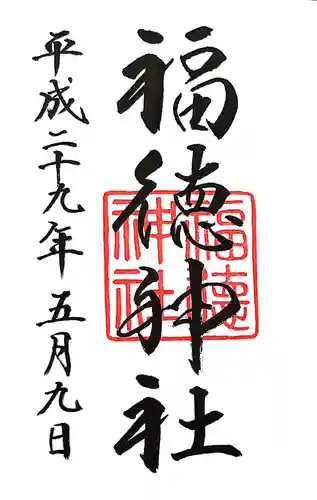 福徳神社
福徳
神社
平成二十九年五月九日